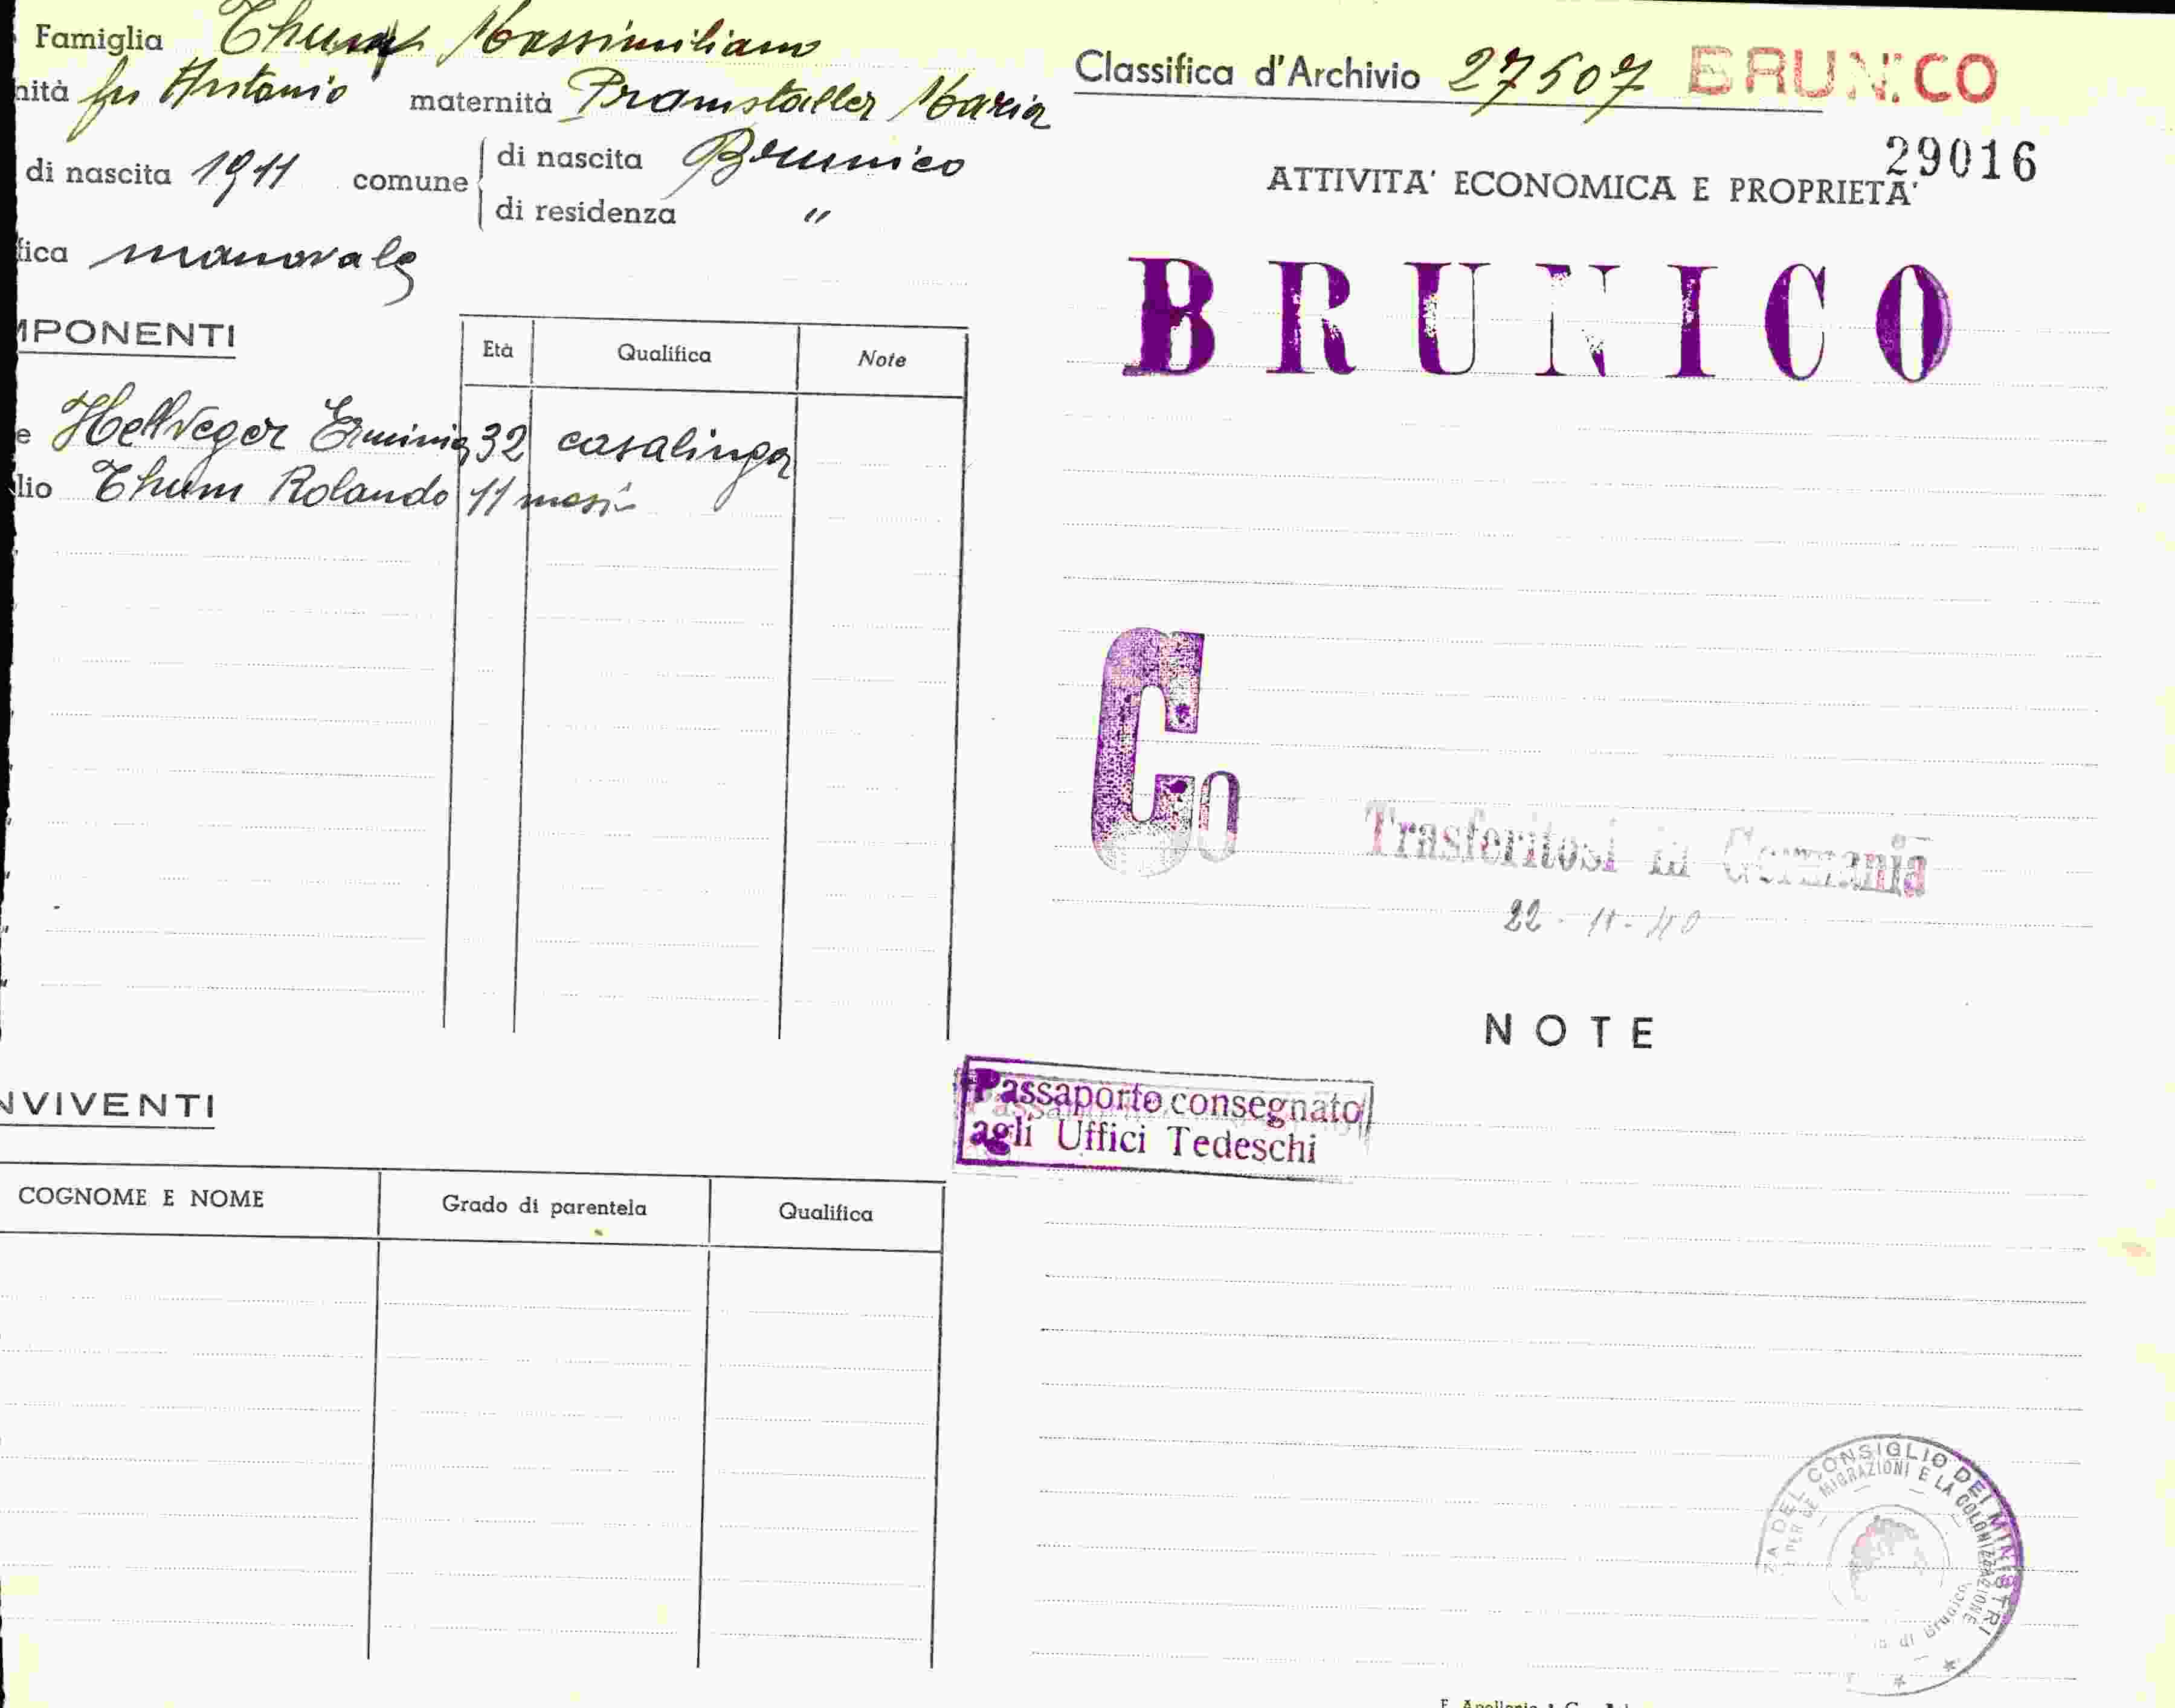 Famiglia Thum Massimiliano
nità fu Antonio maternità Pramstaller Maria
di nascita 1911 comune di nascita Brunico
di residenza "
fica manovale
MPONENTI
Età Qualifica Note
e Hellveger Erminia 32 casalinga
lio Thum Rolando 11 mesi
NVIVENTI
COGNOME E NOME Grado di parentela Qualifica
Classifica d'Archivio 27507 BRUNICO
29016
ATTIVITA' ECONOMICA E PROPRIETA'
BRUNICO
Co
Trasferitosi in Germania
22-11-40
NOTE
Passaporto consegnato
agli Uffici Tedeschi
ZA DEL CONSIGLIO DEI MINISTRI
PER LE MIGRAZIONI E LA COLONIZZAZIONE
di Brunico